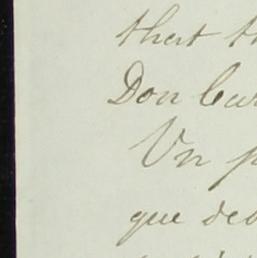 that th
Don Car
Un p
que deb